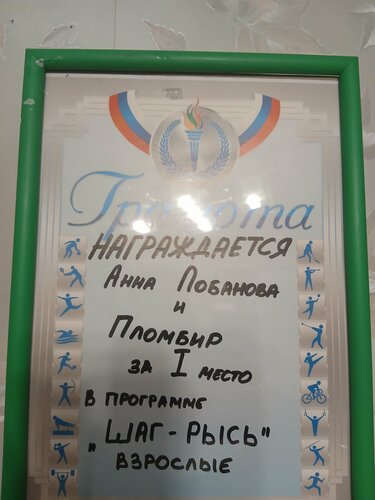 Грамота
НАГРАЖДАЕТСЯ
Анна Лобанова
и
Пломбир
за I место
в программе
„ШАГ-РЫСЬ"
взрослые